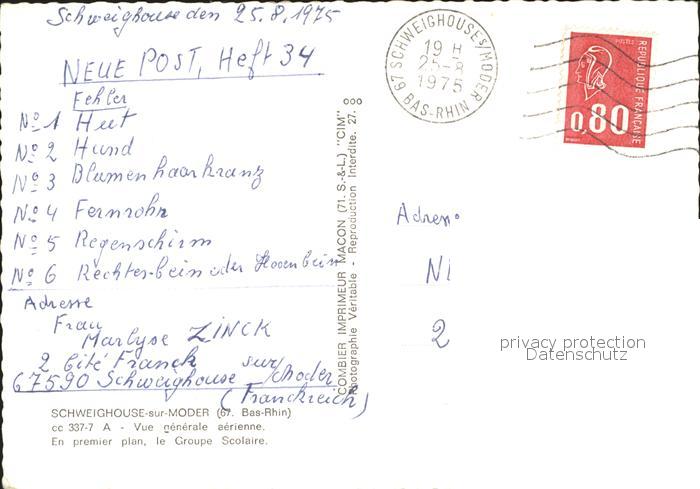 Schweighouse den 25.8.1975
NEUE POST, Heft 34
Fehler
No 1 Hut
No 2 Hund
No 3 Blumenhaarkranz
No 4 Fernrohr
No 5 Regenschirm
No 6 Rechtes-bein oder Hosenbein
Adresse
Frau
Marlyse ZINCK
2 Cité Franck
67590 Schweighouse sur/Moder
(Frankreich)
SCHWEIGHOUSE-sur-MODER (67. Bas-Rhin)
cc 337-7 A - Vue générale aérienne.
En premier plan, le Groupe Scolaire.
COMBIER IMPRIMEUR MACON (71. S.-&-L.) "CIM"
Photographie Véritable - Reproduction Interdite. 27.
67 SCHWEIGHOUSE S/MODER
19 H
25-8
1975
BAS-RHIN
POSTES
REPUBLIQUE FRANÇAISE
0,80
Adress.
NI
2
privacy protection
Datenschutz